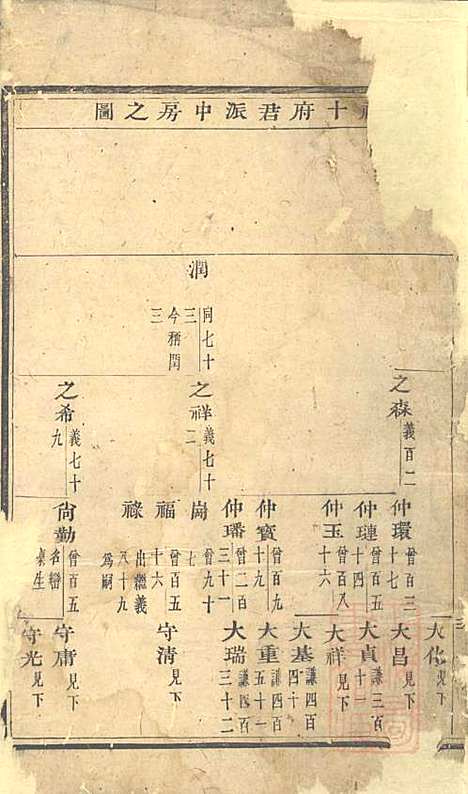 十府君派中房之圖
潤
同七十三
今稱閏三
之森
義百二
之祥
義七十二
之希
義七十九
仲環
曾百三十七
仲璉
曾百五十四
仲玉
曾百八十六
仲寶
曾百九十九
仲璠
曾二百三十一
崗
曾九十七
福
曾百五十六
祿
出繼義八十九為嗣
尙勤
曾百五
名巒
大化
見下
大昌
見下
大貞
謙三百一十
大祥
見下
大基
謙四百四十
大重
謙四百五十一
大瑞
謙四百三十二
守清
見下
守庸
見下
守光
見下